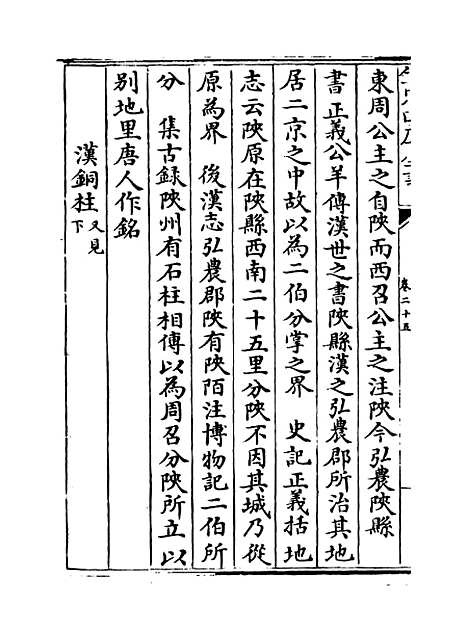 東周公主之自陜而西召公主之注陜今弘農陜縣
書正義公羊傳漢世之書陜縣漢之弘農郡所治其地
居二京之中故以為二伯分掌之界　史記正義括地
志云陜原在陜縣西南二十五里分陜不因其城乃從
原為界　後漢志弘農郡陜有陜陌注博物記二伯所
分　集古録陜州有石柱相傳以為周召分陜所立以
别地里唐人作銘
漢銅柱又見下
卷二十五